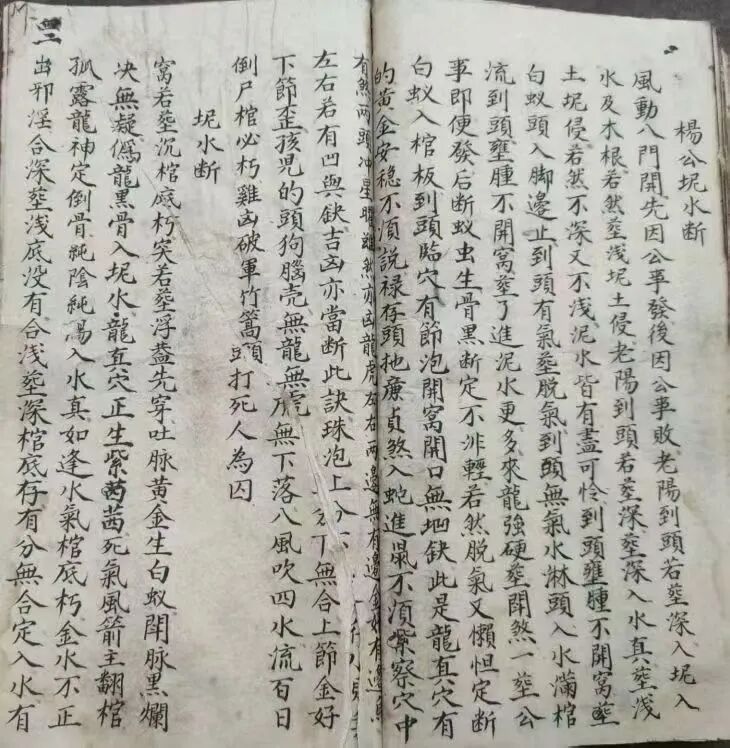 楊公坭水断
風動八門開先因公事發後因公事敗老陽到頭若塟深入坭入
水及木根若然塟浅坭土侵老陽到頭若塟深塟深入水真塟浅
土坭侵若然不深又不浅泥水皆有盡可怜到頭壅腫不開窩塟
白蚁頭入脚邊止到頭有氣塟脱氣到頭無氣水淋頭入水滿棺
流到頭壅腫不開窩塟了進泥水更多來龍强硬塟開煞一塟公
事即便發后断蚁虫生骨黑断定不非輕若然脱氣又懶怛定断
白蚁入棺板到頭臨穴有節泡開窩開口無坭缺此是龍真穴有
的黄金安穏不湏説禄存頭扡廉貞煞入蛇進鼠不湏縈察穴中
有煞两頭冲星雖然亦凶龍虎左右两邉無有邉金好有邉
左右若有凹與缺吉凶亦當断此訣珠泡上分下無合上節金好
下節歪孩児的頭狗腦壳無龍無虎無下落八風吹四水流石日
倒尸棺必朽雞凶破軍竹篙頭打死人為囚
坭水断
窩若塟沉棺底朽突若塟浮盖先穿吐脉黄金生白蚁開脉黑爛
决無疑僞龍黑骨入坭水龍真穴正生紫茜茜死氣風箭主翻棺
孤露龍神定倒骨純陰純湯入水真如逢水氣棺底朽金水不正
出邪淫合深塟浅底没有合浅塟深棺底存有分無合定入水有